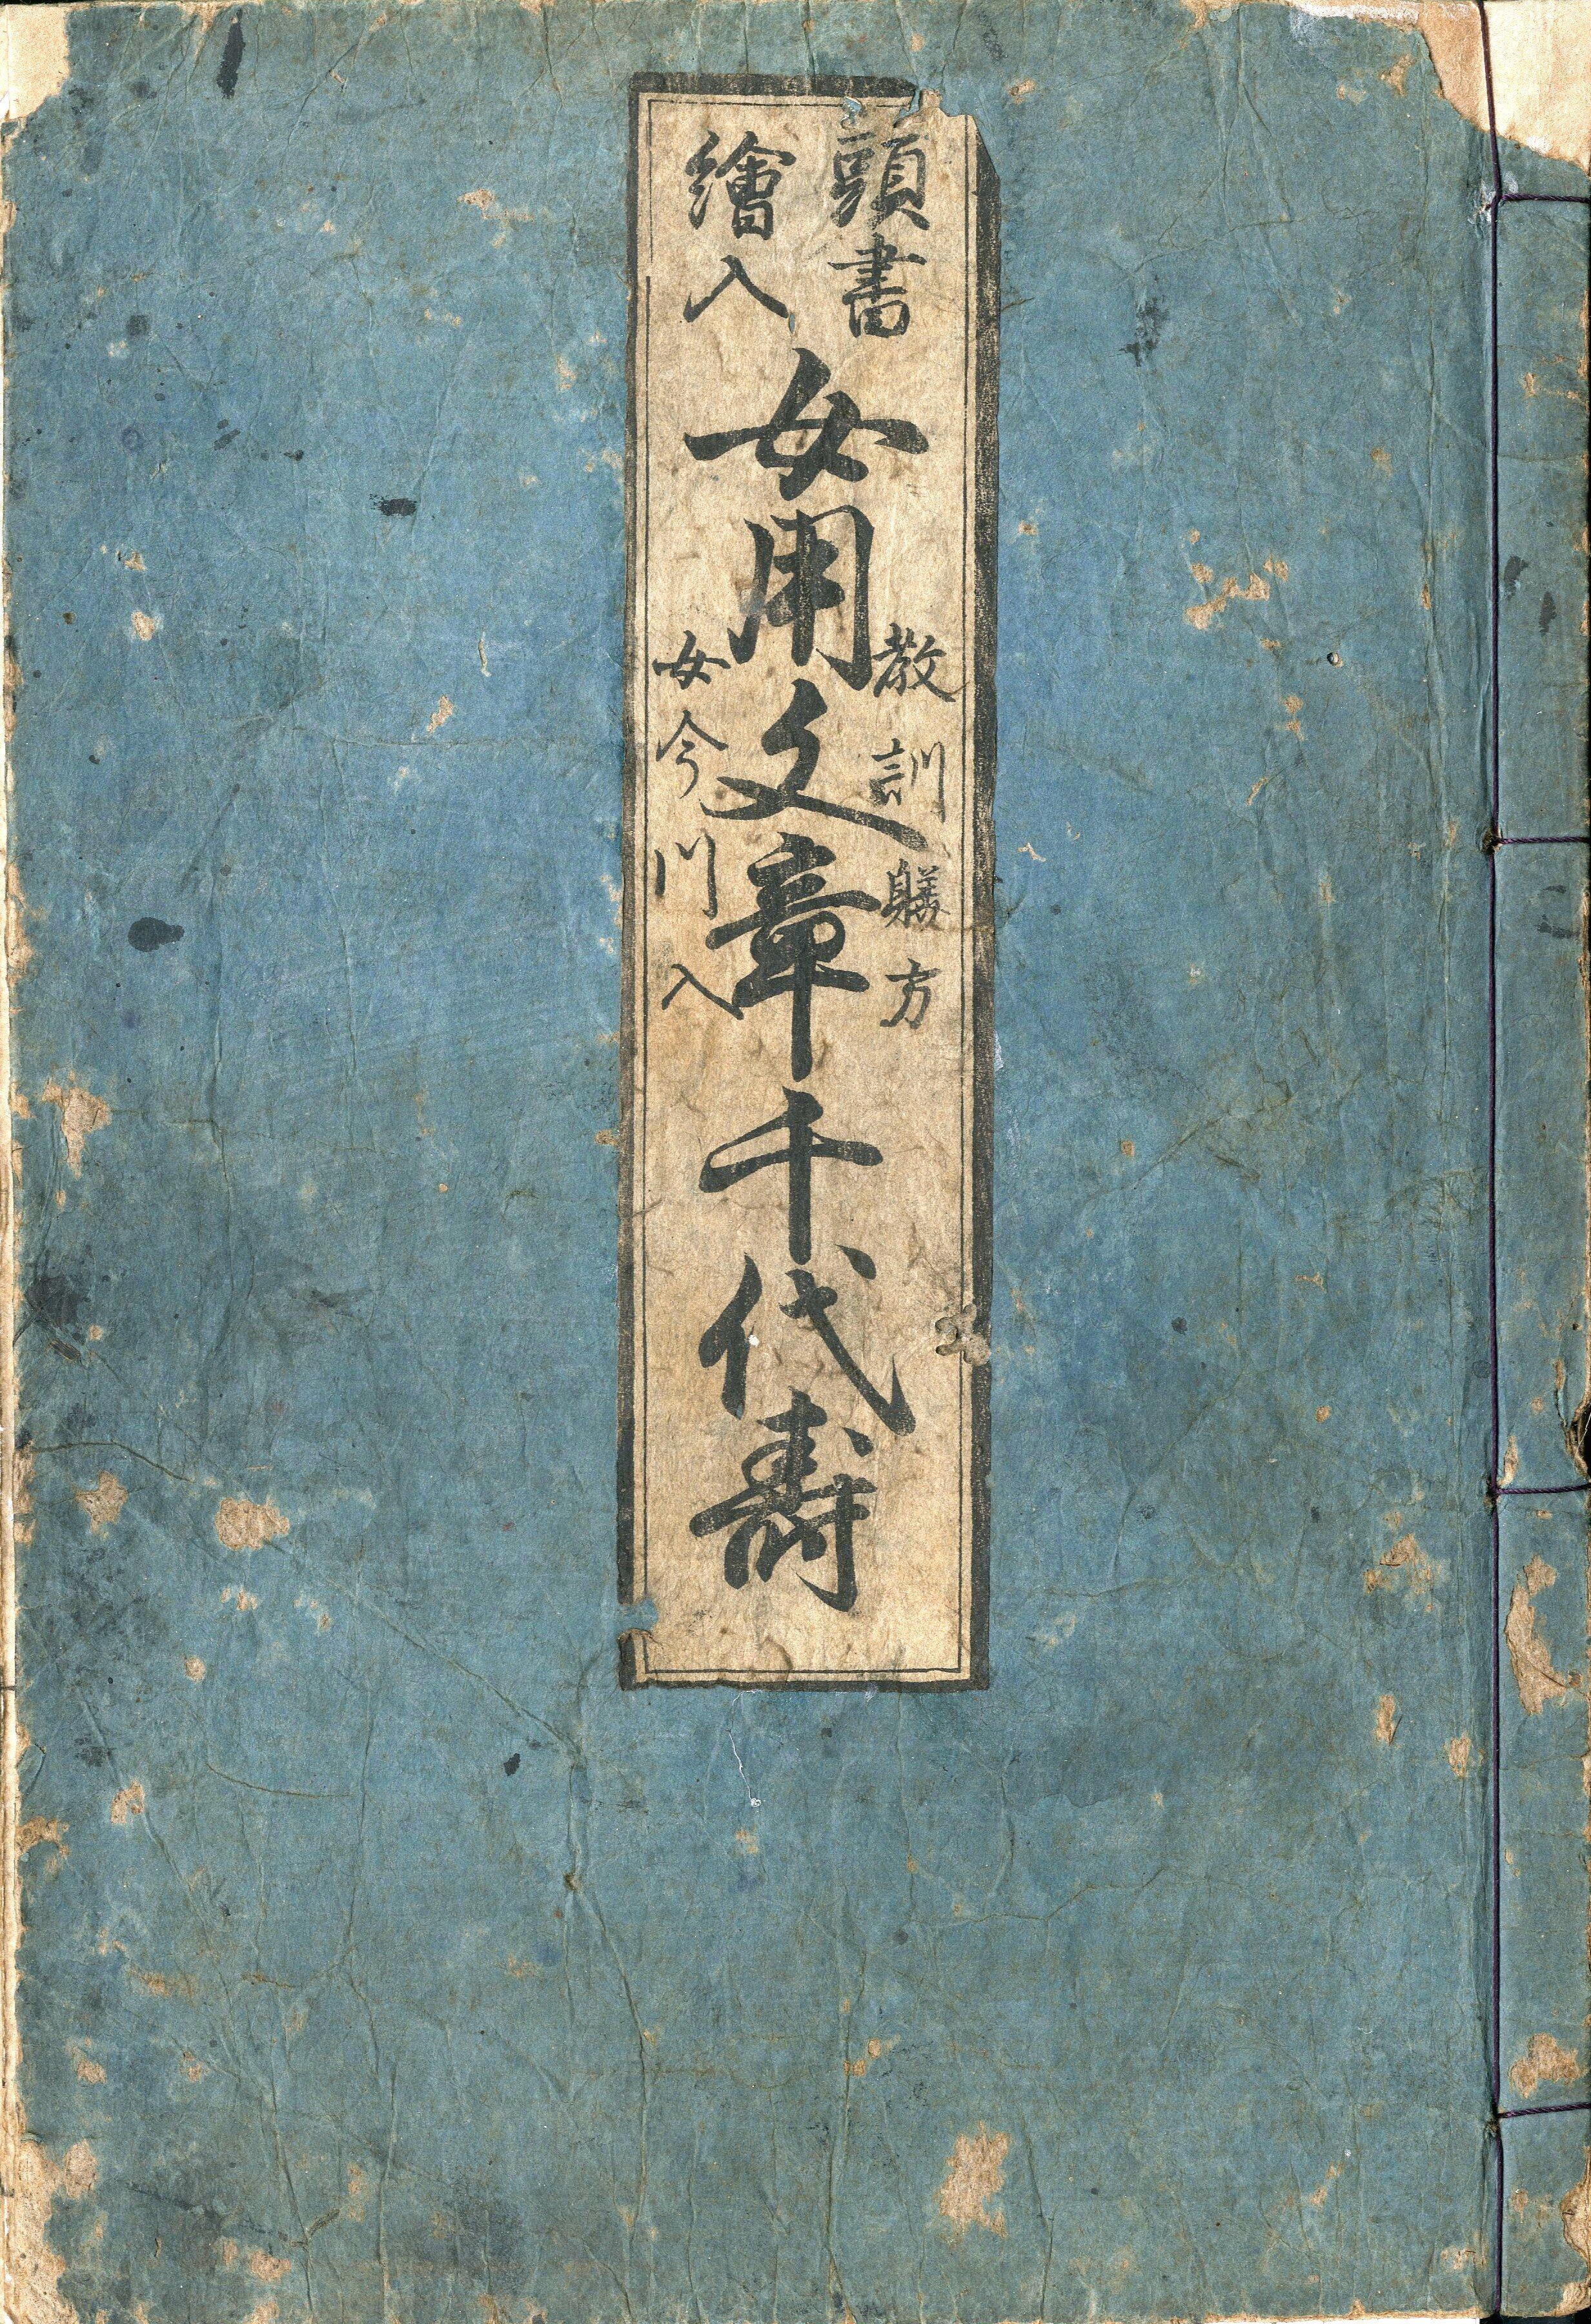 頭書
繪入
女用文章千代寿
教訓躾方
女今川入